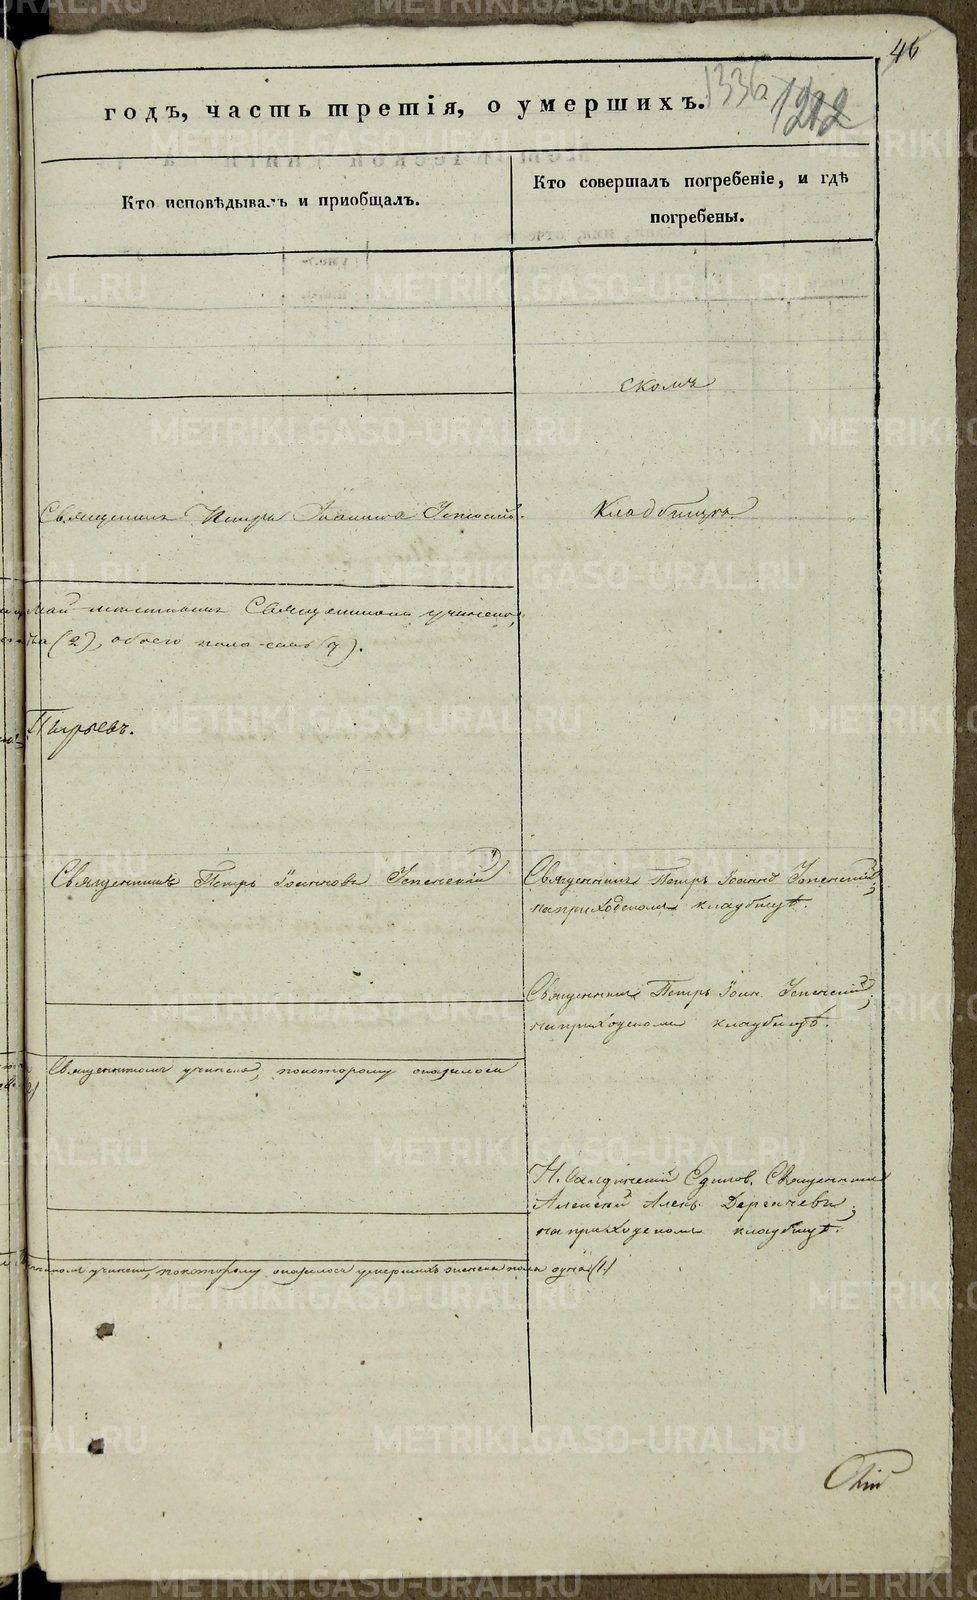 46
годъ, часть третія, о умершихъ.
1336
1212
Кто исповѣдывалъ и приобщалъ.
Кто совершалъ погребеніе, и гдѣ
погребены.
скомъ
Священникъ Петръ Іоанновъ Успенскій.
Кладбищѣ
Священникомъ учинено,
(2), обоего пола семь (7).
Священникъ Петръ Іоанновъ Успенскій
Священникъ Петръ Іоанновъ Успенскій;
на приходскомъ кладбищѣ.
Священникъ Петръ Іоан. Успенскій;
на приходскомъ кладбищѣ.
Священникомъ учинена, по которому оказалось
Н. Салдинскій Единов. Священникъ
Алексій Алекс.
на приходскомъ кладбищѣ.
учинена, по которому оказалось умершихъ женска пола одна (1.)
METRIKI.GASO-URAL.RU